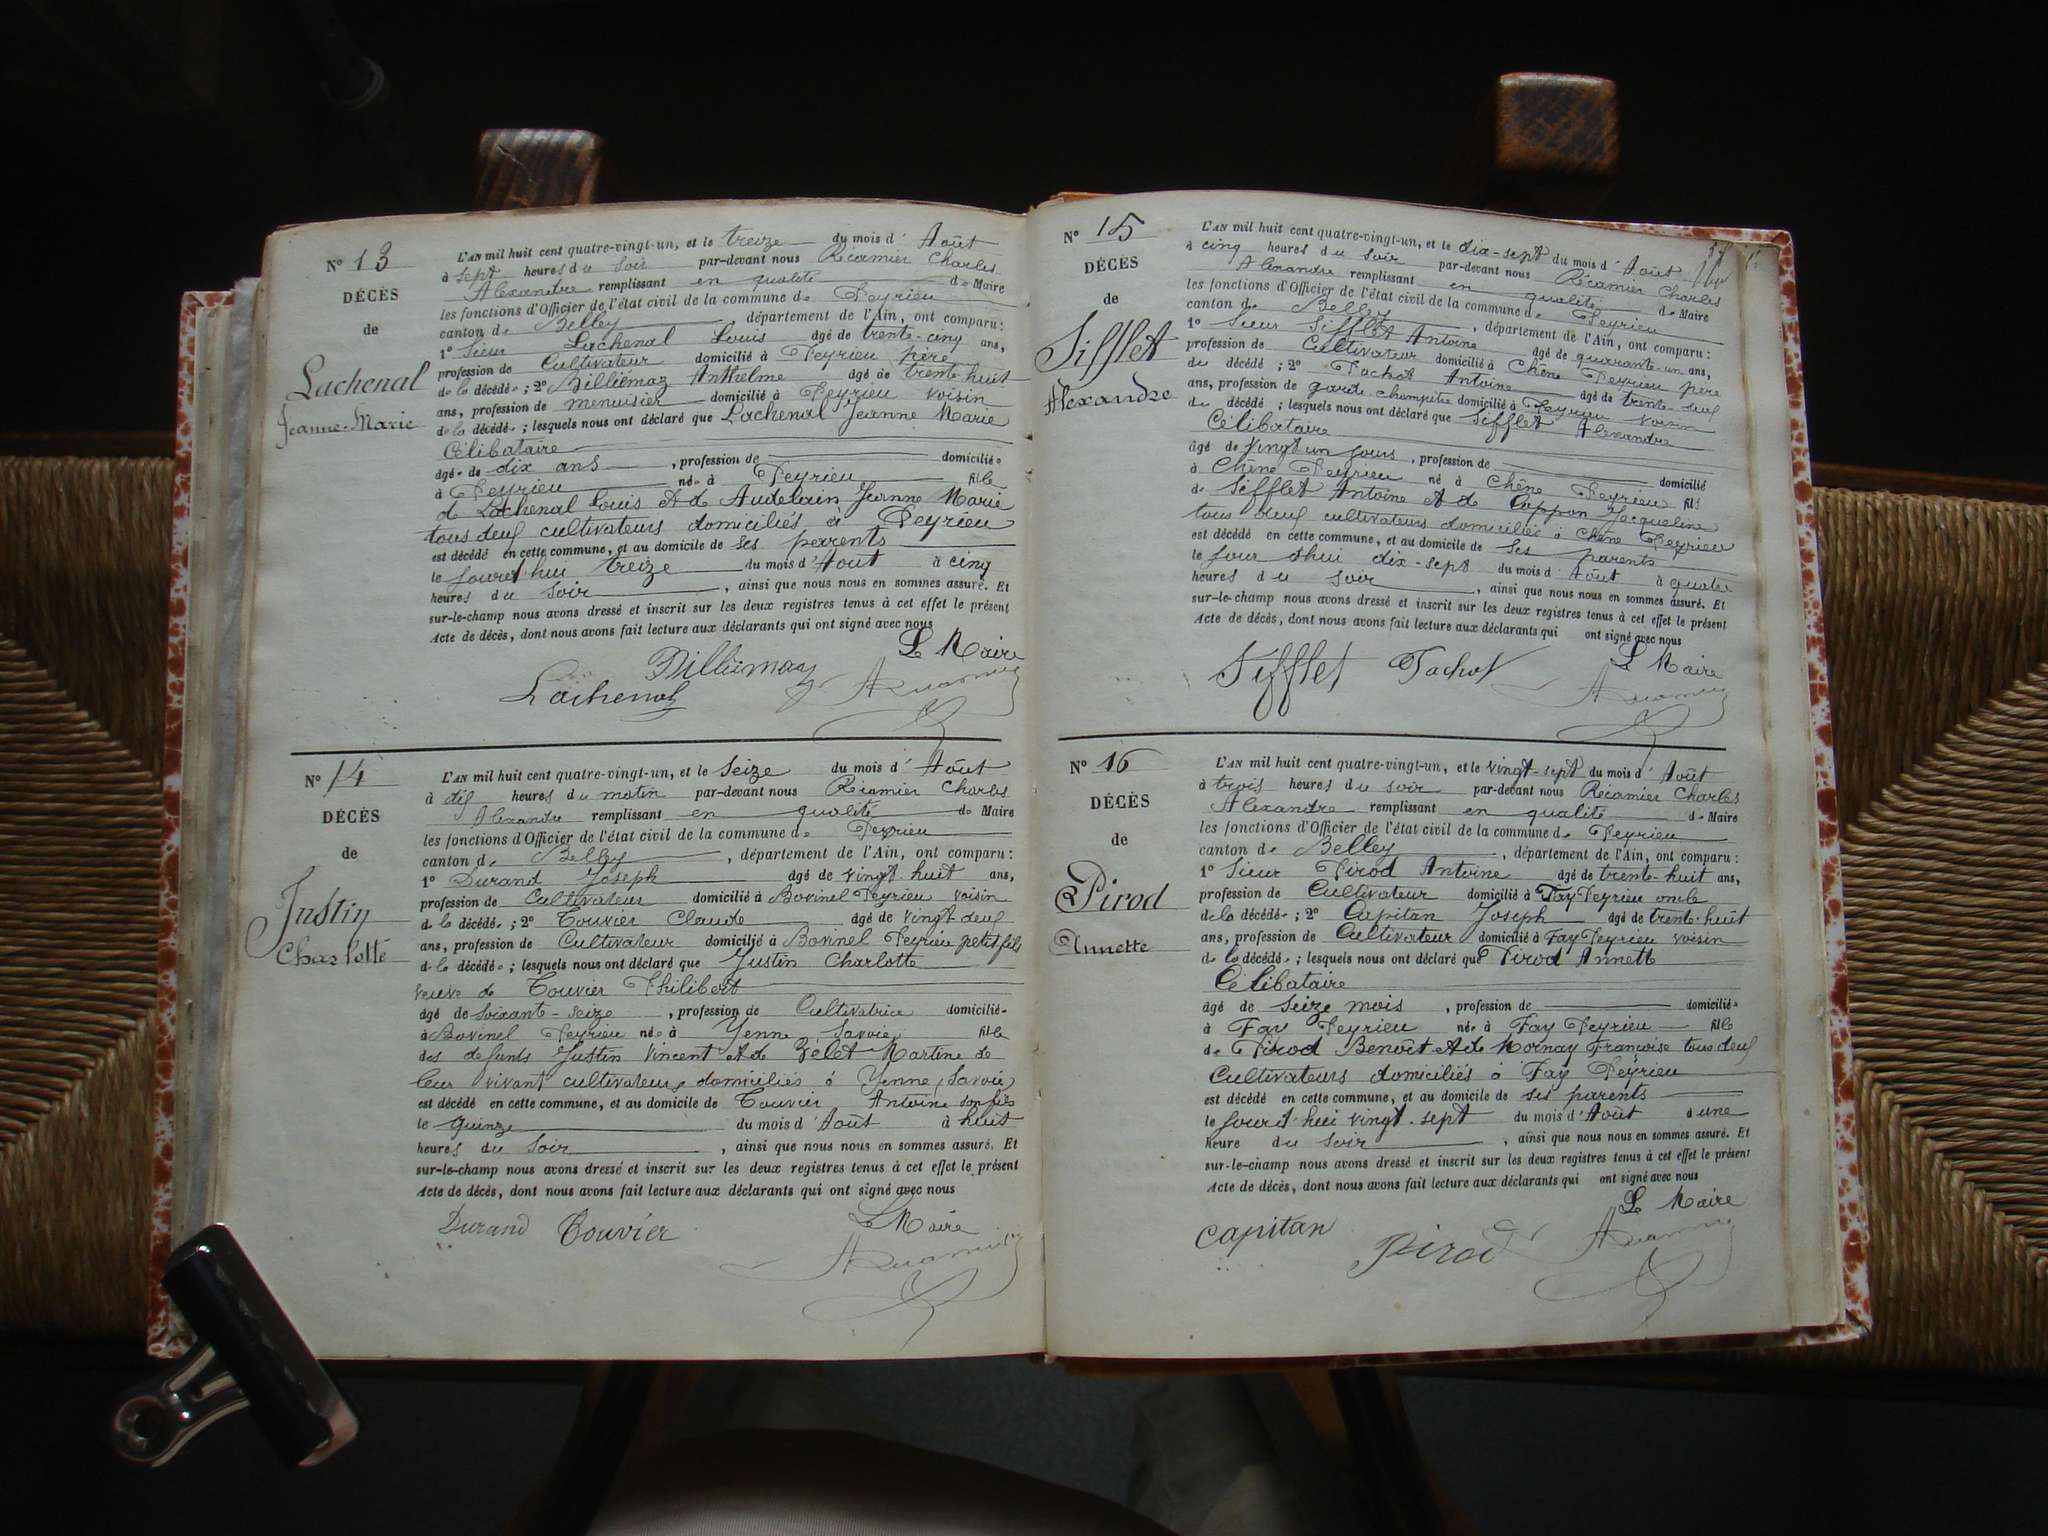 N° 13
DÉCÈS
de
Lachenal
Jeanne-Marie
L'AN mil huit cent quatre-vingt-un, et le treize du mois d'Août
à sept heures du soir par-devant nous Récamier Charles
Alexandre remplissant en qualité de Maire
les fonctions d'Officier de l'état civil de la commune de Peyrieu
canton de Belley, département de l'Ain, ont comparu:
1° Sieur Lachenal Louis agé de trente-cinq ans,
profession de Cultivateur domicilié à Peyrieu père
de la décédée; 2° Billiemaz Anthelme agé de trente huit
ans, profession de menuisier domicilié à Peyrieu voisin
de la décédée; lesquels nous ont déclaré que Lachenal Jeanne Marie
Célibataire
âgée de dix ans, profession de domiciliée
à Peyrieu née à Peyrieu fille
de Lachenal Louis et de Audelain Jeanne Marie
tous deux cultivateurs domiciliés à Peyrieu
est décédé en cette commune, et au domicile de ses parents
le jourd'hui treize du mois d'Août à cinq
heures du soir, ainsi que nous nous en sommes assuré. Et
sur-le-champ nous avons dressé et inscrit sur les deux registres tenus à cet effet le présent
Acte de décès, dont nous avons fait lecture aux déclarants qui ont signé avec nous
Le Maire
Billiemaz
Lachenal
N° 14
DÉCÈS
de
Justin
Charlotte
L'AN mil huit cent quatre-vingt-un, et le seize du mois d'Août
à dix heures du matin par-devant nous Récamier Charles
Alexandre remplissant en qualité de Maire
les fonctions d'Officier de l'état civil de la commune de Peyrieu
canton de Belley, département de l'Ain, ont comparu:
1° Durand Joseph agé de vingt huit ans,
profession de Cultivateur domicilié à Bovinel Peyrieu voisin
de la décédée; 2° Touvier Claude agé de vingt deux
ans, profession de Cultivateur domicilié à Bovinel Peyrieu petit fils
de la décédée; lesquels nous ont déclaré que Justin Charlotte
veuve de Touvier Philibert
âgé de soixante-seize, profession de Cultivatrice domiciliée
à Bovinel Peyrieu née à Yenne Savoie fille
des defunts Justin Vincent et de Bélet Martine de
leur vivant cultivateurs domiciliés à Yenne (Savoie)
est décédé en cette commune, et au domicile de Touvier Antoine son fils
le quinze du mois d'Août à huit
heures du soir, ainsi que nous nous en sommes assuré. Et
sur-le-champ nous avons dressé et inscrit sur les deux registres tenus à cet effet le présent
Acte de décès, dont nous avons fait lecture aux déclarants qui ont signé avec nous
Durand Touvier Le Maire
N° 15
DÉCÈS
de
Sifflet
Alexandre
L'AN mil huit cent quatre-vingt-un, et le dix-sept du mois d'Août
à cinq heures du soir par-devant nous Récamier Charles
Alexandre remplissant en qualité de Maire
les fonctions d'Officier de l'état civil de la commune de Peyrieu
canton de Belley, département de l'Ain, ont comparu:
1° Sieur Sifflet Antoine agé de quarante-un ans,
profession de Cultivateur domicilié à Chêne Peyrieu père
du décédé; 2° Tachot Antoine agé de trente-deux
ans, profession de garde champêtre domicilié à Peyrieu voisin
du décédé; lesquels nous ont déclaré que Sifflet Alexandre
Célibataire
âgé de vingt un jours, profession de domicilié
à Chêne Peyrieu né à Chêne Peyrieu fils
de Sifflet Antoine et de Coppon Jacqueline
tous deux cultivateurs domiciliés à Chêne Peyrieu
est décédé en cette commune, et au domicile de ses parents
le jour d'hui dix-sept du mois d'Août à quatre
heures du soir, ainsi que nous nous en sommes assuré. Et
sur-le-champ nous avons dressé et inscrit sur les deux registres tenus à cet effet le présent
Acte de décès, dont nous avons fait lecture aux déclarants qui ont signé avec nous
Le Maire
Sifflet Tachot
N° 16
DÉCÈS
de
Pirod
Annette
L'AN mil huit cent quatre-vingt-un, et le vingt-sept du mois d'Août
à trois heures du soir par-devant nous Récamier Charles
Alexandre remplissant en qualité de Maire
les fonctions d'Officier de l'état civil de la commune de Peyrieu
canton de Belley, département de l'Ain, ont comparu:
1° Sieur Pirod Antoine agé de trente-huit ans,
profession de Cultivateur domicilié à Fay Peyrieu oncle
de la décédée; 2° Capitan Joseph agé de trente-huit
ans, profession de Cultivateur domicilié à Fay Peyrieu voisin
de la décédée; lesquels nous ont déclaré que Pirod Annette
Célibataire
âgé de seize mois, profession de domiciliée
à Fay Peyrieu née à Fay Peyrieu fille
de Pirod Benoît et de Mornay Françoise tous deux
Cultivateurs domiciliés à Fay Peyrieu
est décédé en cette commune, et au domicile de ses parents
le jourd'hui vingt-sept du mois d'Août à une
heure du soir, ainsi que nous nous en sommes assuré. Et
sur-le-champ nous avons dressé et inscrit sur les deux registres tenus à cet effet le présent
Acte de décès, dont nous avons fait lecture aux déclarants qui ont signé avec nous
Le Maire
Capitan
Pirod